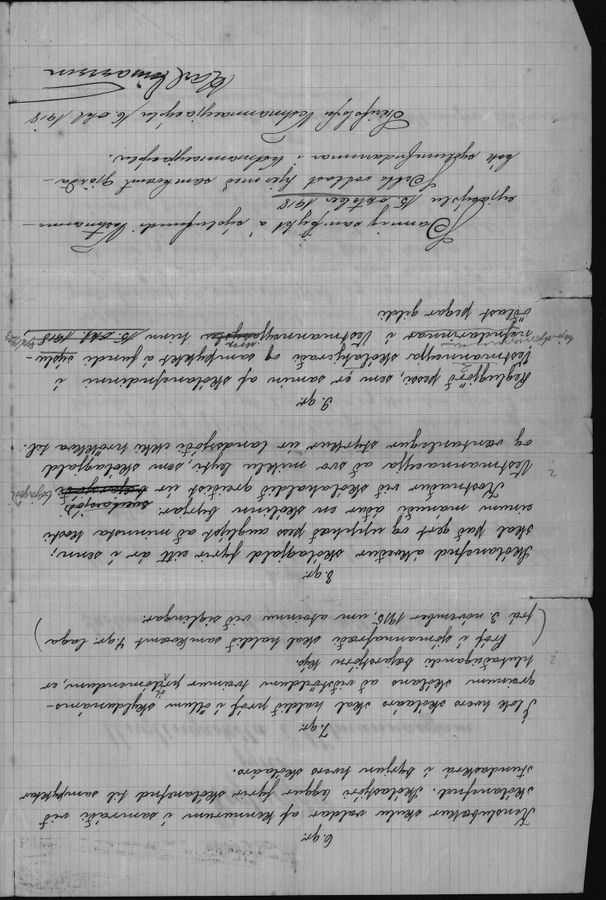 6. gr.
Kenslubækur skulu valdar af kennurum í samráði við
skólanefnd. Skólastjóri leggur fyrir skólanefnd til samþyktar
stundaskrá í byrjun hvers skólaárs.
7. gr.
Í lok hvers skólaárs skal haldið próf í öllum skyldunáms-
greinum skólans að viðstöddum tveimur prófdómendum, er
hlutaðeigandi bæjarstjórn kýs.
(Próf í sjómannafræði skal haldið samkvæmt 4. gr. laga
frá 3. nóvember 1915, um atvinnu við siglingar.)
8. gr.
Skólanefnd ákveður skólagjald fyrir eitt ár í senn;
skal það gert og upphæð þess auglýst að minnsta kosti
einum mánuði áður en skólinn byrjar.
Kostnaður við skólahaldið greiðist úr sveitarsjóði
Vestmannaeyja að svo miklu leyti, sem skólagjald
og væntanlegur styrkur úr landssjóði ekki hrökkva til.
9. gr.
Reglugjörð þessi, sem er samin af skólanefndinni í
Vestmannaeyja skólahjeraði og samþykkt á fundi sýslu-
nefndarinnar í Vestmannaeyjasýslu hinn 15. okt. 1918,
öðlast þegar gildi.
Þannig samþykt á sýslufundi Vestmanna-
eyjasýslu 15 október 1918
Þetta vottast hjermeð samkvæmt gjörða-
bók sýslunefndarinnar í Vestmannaeyjasýslu.
Skrifstofu Vestmannaeyjasýslu 16. okt. 1918
Karl Einarsson